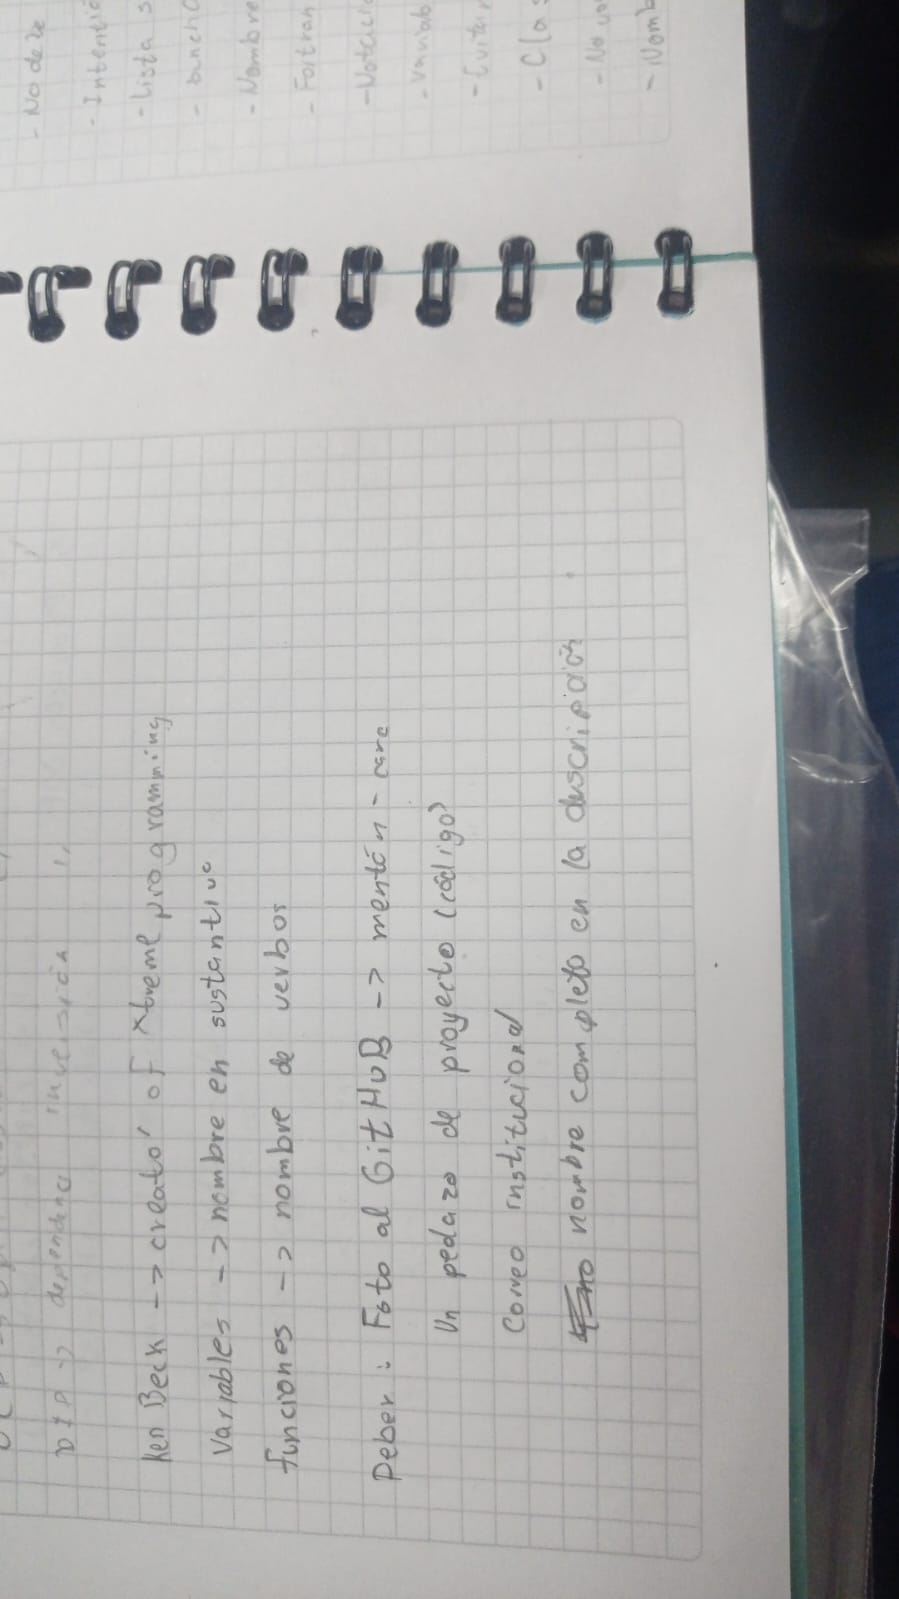 DIP -> dependenci inversión
Ken Beck -> creator of xtreme programming
Variables -> nombre en sustantivo
funciones -> nombre de verbos
Deber: Foto al GitHUB -> mentón - cara
Un pedazo de proyecto (código)
Correo institucional
nombre completo en la descripción
- No de
- Intenti
- Lista s
- Nombre
- Fortran
- Notaci
- Variab
- Evitar
- Clas
- No
- Nomb